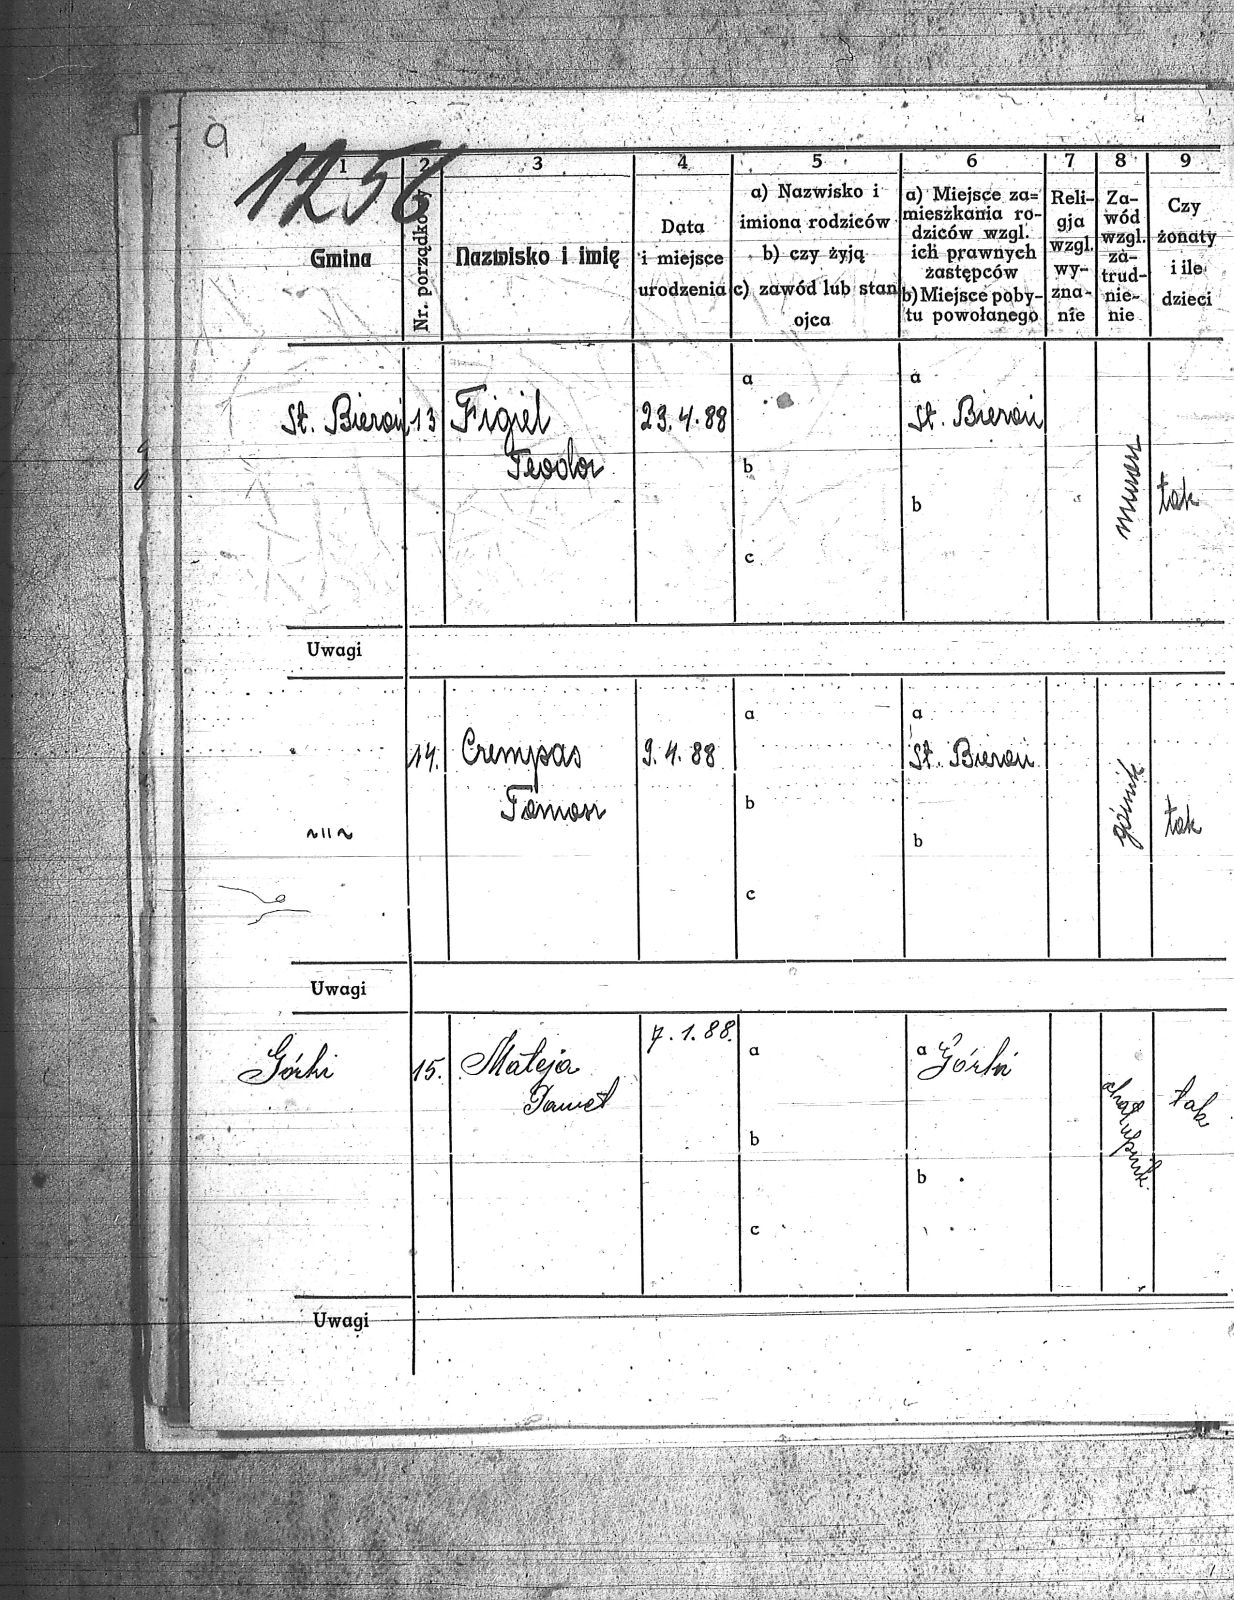 9
1256
1
2
3
4
5
6
7
8
9
Gmina
Nr. porządkowy
Nazwisko i imię
Data
i miejsce
urodzenia
a) Nazwisko i
imiona rodziców
b) czy żyją
c) zawód lub stan
ojca
a) Miejsce za=
mieszkania ro-
dziców wzgl.
ich prawnych
zastępców
b) Miejsce poby-
tu powołanego
Reli-
gja
wzgl.
wy-
zna-
nie
Za-
wód
wzgl.
za-
trud-
nie-
nie
Czy
żonaty
i ile
dzieci
St. Bieruń
13
Figiel
Teodor
23.4.88
a
b
c
a
St. Bieruń
b
murarz
tak
Uwagi
~"~
14.
Crempas
Tomasz
9.4.88
a
b
c
a
St. Bieruń
b
górnik
tak
Uwagi
Górki
15.
Mateja
Paweł
7.1.88.
a
b
c
a Górki
b
chałupnik.
tak
Uwagi